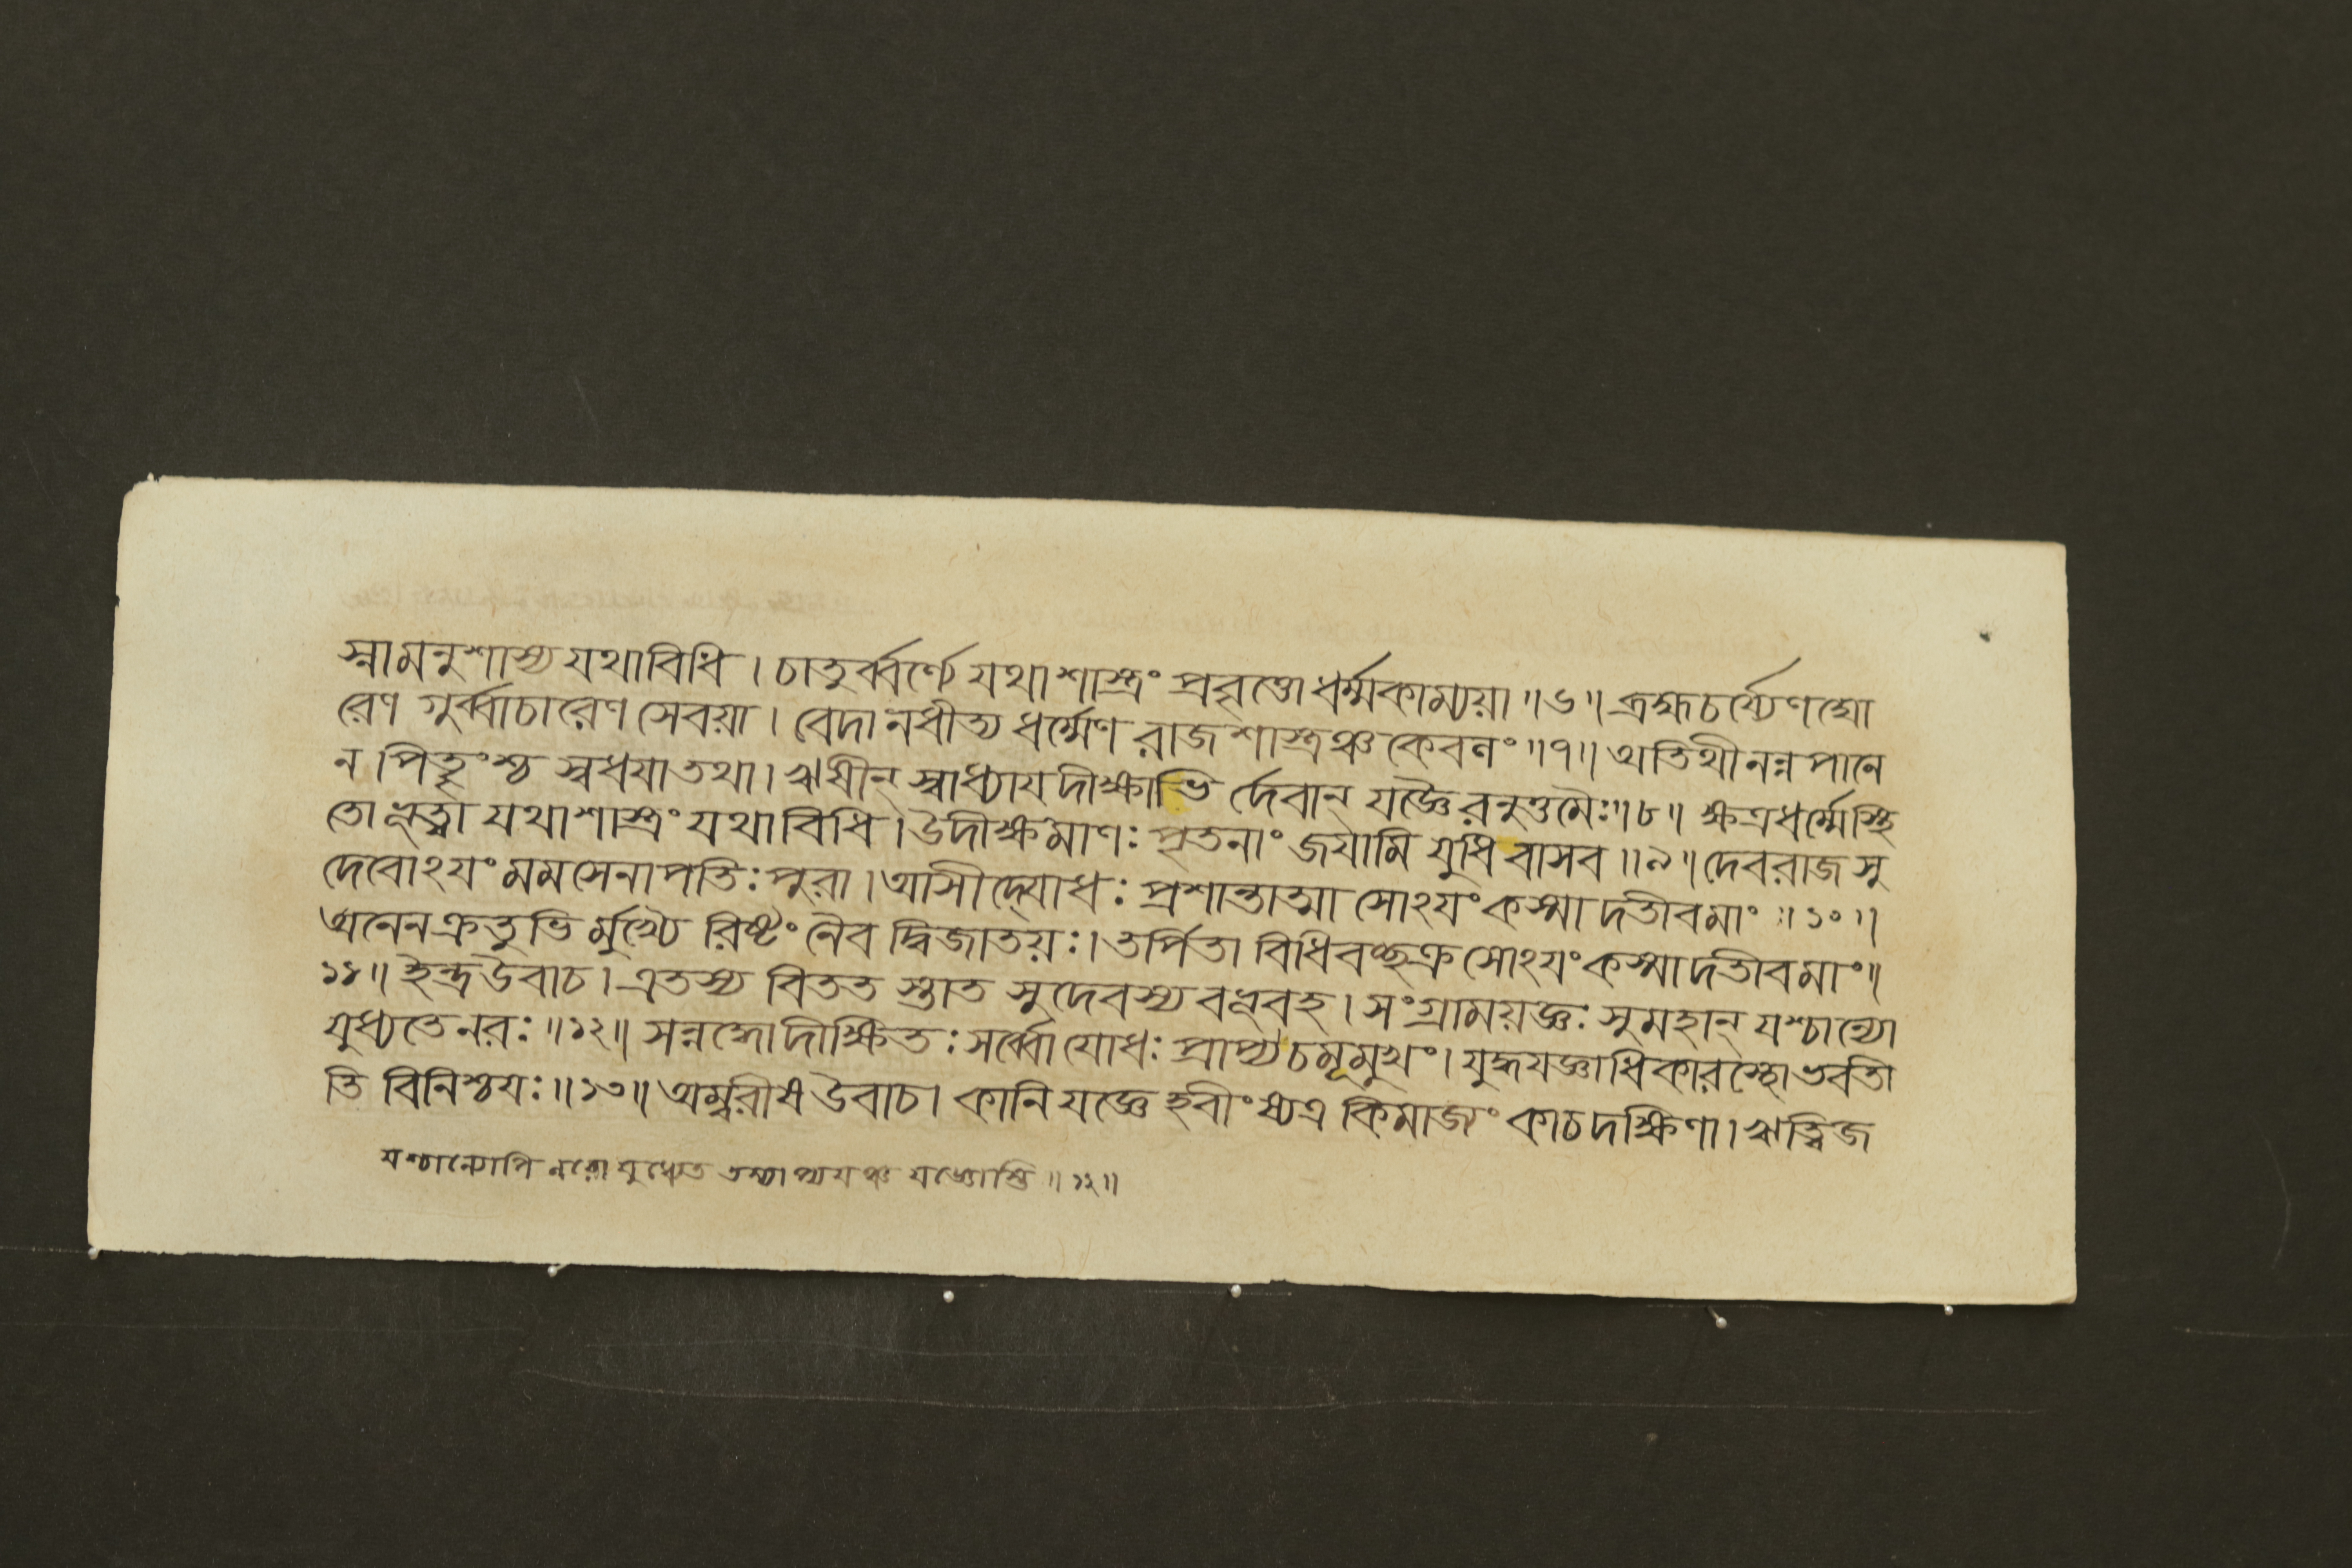 স্নামনুশাস্য যথাবিধি । চাতুর্ব্বর্ণ্যে যথাশাস্ত্রং প্রবৃত্তো ধর্ম্মকাম্যয়া ॥৬॥ ব্রহ্মচর্য্যেণ ঘো
রেণ গুর্ব্বাচারেণ সেবয়া । বেদানধীত্য ধর্ম্মেণ রাজশাস্ত্রঞ্চ কেবলং ॥৭॥ অতিথীনন্নপানে
ন পিতৄংশ্চ স্বধয়া তথা । ঋষীন্ স্বাধ্যায়দীক্ষাভি র্দেবান্ যজ্ঞৈরনুত্তমৈঃ ॥৮॥ ক্ষত্রধর্ম্মে স্থি
তো ভূত্বা যথাশাস্ত্রং যথাবিধি । উদীক্ষমাণঃ পৃতনাং জয়ামি যুধি বাসব ॥৯॥ দেবরাজ সু
দেবোঽয়ং মম সেনাপতিঃ পুরা । আসীদ্যোধঃ প্রশান্তাত্মা সোঽয়ং কস্মাদতীব মাং ॥১০॥
অনেন ক্রতুভি র্মুখ্যৈ রিষ্টং নৈব দ্বিজাতয়ঃ । তর্পিতা বিধিবচ্ছক্র সোঽয়ং কস্মাদতীব মাং ॥
১১॥ ইন্দ্র উবাচ । এতস্য বিতত স্তাত সুদেবস্য বভূবহ । সংগ্রাময়জ্ঞঃ সুমহান্ যশ্চান্যো
যুধ্যতে নরঃ ॥১২॥ সন্নদ্ধো দীক্ষিতঃ সর্ব্বো যোধঃ প্রাপ্য চমূমুখং । যুদ্ধযজ্ঞাধিকারস্থো ভবতী
তি বিনিশ্চয়ঃ ॥১৩॥ অম্বরীষ উবাচ । কানি যজ্ঞে হবীংষ্যত্র কিমাজ্যং কাচ দক্ষিণা । ঋত্বিজ
যশ্চান্যোপি নরো যুধ্যেত তস্যাপ্যয়ঞ্চ যজ্ঞোস্তি ॥১২॥